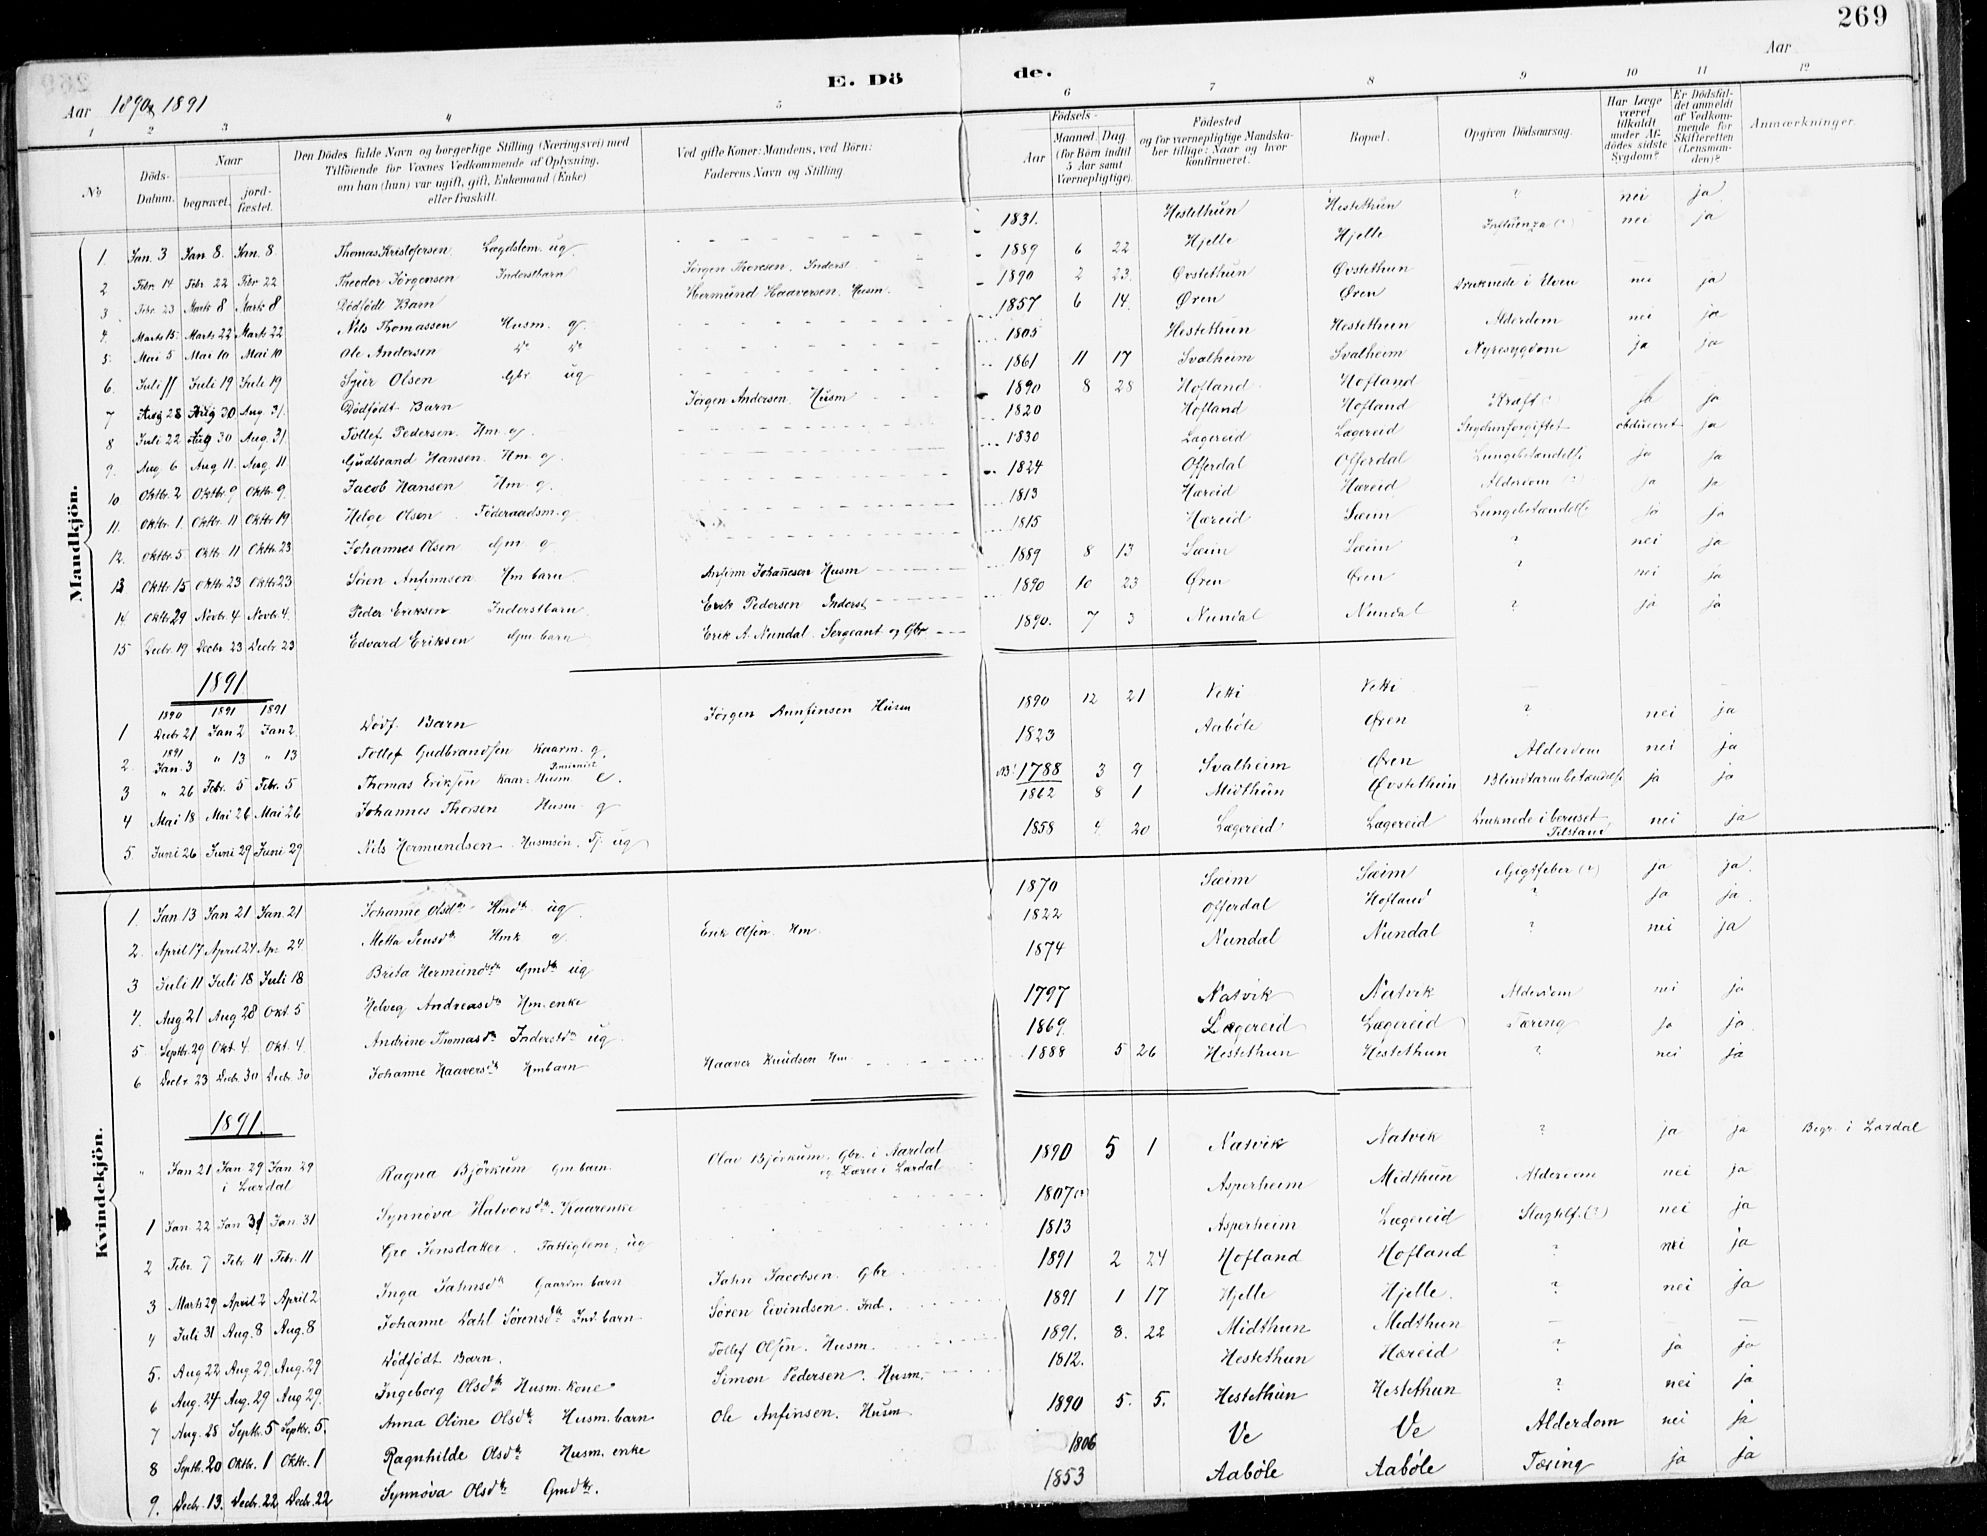 269
Aar 1890 & 1891
E. Döde.
Aar
1 2 3 4 5 6 7 8 9 10 11 12
No
Döds-Datum.
Naar begravet. jordfæstet.
Den Dödes fulde Navn og borgerlige Stilling (Næringsvei) med Tilföiende for Voxnes Vedkommende af Oplysning, om han (hun) var ugift, gift, Enkemand (Enke) eller fraskilt.
Ved gifte Koner: Mandens, ved Börn: Faderens Navn og Stilling
Födsels-
Aar Maaned. Dag (for Börn indtil 5 Aar samt Værnepligtige).
Födested og for værnepligtige Mandskaber tillige: Naar og hvor konfirmeret.
Bopæl.
Opgiven Dödsaarsag.
Har Læge været tilkaldt under Afdödes sidste Sygdom?
Er Dödsfaldet anmeldt af Vedkommende for Skifteretten (Lensmanden)?
Anmærkninger.
Mandkjön.
1. Jan. 3 Jan. 8. Jan. 8 Thomas Kristofersen Lægdslem. ug. 1831. Hestethun Hestethun ? nei ja
2 Febr. 14 Febr 22 Febr 22 Theodor Jörgensen Inderstbarn Jörgen Thoresen. Inderst 1889 6 22 Hjelle Hjelle Influenza (?) nei ja
3 Febr. 23 Mark 8 Mark 8 Dödfödt Barn Hermund Haaversen. Husm. 1890 2 23. Øvstethun Øvstethun —
4. Marts 15. Marts 22 Marts 22 Nils Thomassen Husm. g. 1857 6 14. Øren Øren Druknede i Elven nei ja
5. Mai 5 Mai 10 Mai 10 Ole Andersen Do Do 1805 Hestethun Hestethun Alderdom nei ja
6. Juli 11 Juli 19 Juli 19 Sjur Olsen Gbr. ug 1861 11 17 Svalheim Svalheim Nyresygdom ja ja
7 Aug 28 Aug 30 Aug. 31. Dödfödt Barn Jörgen Andersen, Husm 1890 8 28 Hofland Hofland
8 Juli 22 Aug 30 Aug. 31. Tollef Pedersen. Hm. g. 1820 Hofland Hofland Kræft ja ja
9. Aug. 6 Aug. 11. Aug. 11 Gudbrand Hansen. Hm. g. 1830 Lægereid Lægereid obduceret ja
10 Oktbr. 2 Oktbr. 9 Oktbr. 9. Jacob Hansen Hm. g. 1824 Offerdal Offerdal Lungebetændelse ja ja
11. Oktbr. 1. Oktbr. 11 Oktbr 19 Helge Olsen Föderaadsm. g 1813 Hæreid Hæreid Alderdom (?) ja ja
12. Oktbr. 5 Oktbr. 11 Oktbr. 23 Johannes Olsen Gm. g 1815 Hæreid Sæim Lungebetændelse ja ja
13 Oktbr. 15 Oktbr 23 Oktbr 23 Sören Anfinnsen. Hm barn. Anfinn Johannesen Husm 1889 8 13 Sæim Sæim ? nei ja
14 Oktbr 29 Novbr. 4 Novbr. 4. Peder Eriksen Inderstbarn. Erik Pedersen Inderst 1890 10 23 Øren Øren ? nei ja
15 Decbr. 19 Decbr. 23 Decbr. 23 Edvard Eriksen Gm barn Erik A. Nundal. Sergeant og Gbr. 1890. 7 3 Nundal Nundal ? ja ja
1891
1890 1891 1891
1 Decbr 21 Jan 2 Jan 2. Dödf. Barn Jörgen Annfinsen Husm 1890 12 21 Vetti Vetti —
2. 1891 Jan. 3 " 13 " 13 Tollef Gudbrandsen Kaarm. g. 1823 Aabøle Øren ? nei ja
3 " 26 Febr. 5 Febr. 5 Thomas Eriksen Kaar-Husm e. NB! 1788 3 9 Svalheim Øren Alderdom nei ja
4 Mai 18 Mai 26 Mai 26 Johannes Thorsen Husm. g 1862 8 1 Midthun Øvstethun Blindtarmbetændelse ja ja
5. Juni 26 Juni 29 Juni 29 Nils Hermundsen Husmsön. Tj. ug 1858 4. 20 Lægereid Lægereid Druknede i beruset Tilstand nei ja
Kvindekjön.
1. Jan. 13 Jan 21 Jan. 21 Johanne Olsdtr Hmdtr ug. 1870 Sæim Sæim Gigtfeber (?) ja ja.
2. April 17 April 24 Apr 24 Metta Jensdtr Hmk g. Erik Olsen. Hm. 1822 Offerdal Hofland ? ja ja
3 Juli 11 Juli 18 Juli 18 Brita Hermundsdtr Gmdtr ug 1874 Nundal Nundal ? nei ja
4. Aug 21 Aug 28 Okt. 5 Helveg Andreasdtr Hm. enke 1797 Natvik Natvik Alderdom nei ja
5. Septbr. 29 Okt. 4. Okt. 4. Andrine Thomasdtr Inderstdtr ug 1869. Lægereid Lægereid Tæring ja ja
6 Decbr 23 Decbr. 30 Decbr. 30 Johanne Haaversdtr Hmbarn Haaver Knudsen Hm. 1888 5 26 Hestethun Hestethun ? nei ja
1891.
" Jan 21 Jan. 29 Jan 29 i Lærdal Ragna Björkum Gm barn. Olav Björkum, Gbr. i Aardal og Lærer i Lærdal 1890 5 1 Natvik Natvik ? ja ja Begr. i Lærdal
1 Jan. 22 Jan 31 Jan. 31 Synnøva Halvorsdtr. Kaarenke 1807 (?) Asperheim Midthun Alderdom nei ja
2 Febr. 7 Febr. 11 Febr. 11 Gro Jensdatter. Fattiglem, ug 1813 Asperheim Lægereid Slagtilf. (?) nei ja
3 Marts 29 April 2 April 2 Inga Jahnsdtr Gaardm. barn Jahn Jacobsen. Gbr. 1891 2 24 Hofland Hofland ? nei ja
4 Juli 31 Aug. 8 Aug. 8 Johanne Dahl Sørensdtr Ind. barn Søren Eivindsen. Ind. 1891 1 17 Hjelle Hjelle. ? nei ja
5. Aug 22 Aug. 29. Aug. 29 Dödfödt Barn. Tollef Olsen. Husm. 1891. 8. 22 Midthun Midthun — — —
6 Aug. 24 Aug. 29 Aug 29. Ingeborg Olsdtr Husm. kone Simon Pedersen. Husm. 1812. Hestethun Hæreid ? ja ja
7 Aug. 28 Septbr. 5 Septbr. 5. Anna Oline Olsdtr Husm. barn Ole Anfinsen. Husm 1890 5. 5. Hestethun Hestethun ? nei ja
8 Septbr. 20 Oktbr. 1 Oktbr. 1 Ragnhilde Olsdtr Husm. enke 1806 Ve Ve Alderdom nei ja
9. Decbr. 13. Decbr. 22 Decbr. 22 Synnøva Olsdtr Gmdtr. 1853 Aabøle Aabøle Tæring ja ja